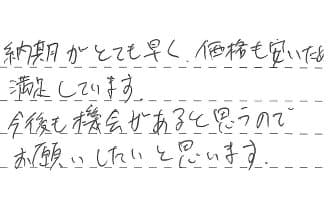 納期がとても早く、価格も安いため
満足しています。
今後も機会があると思うので
お願いしたいと思います。